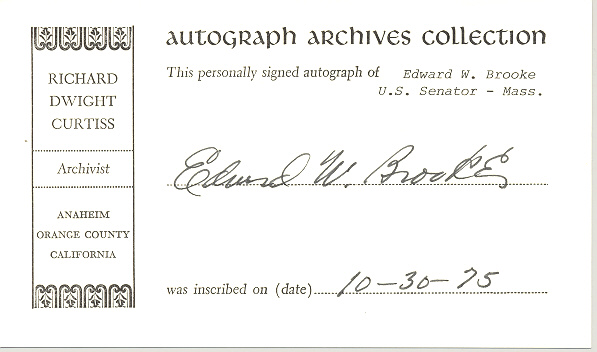 AUTOGRAPH ARCHIVES COLLECTION
RICHARD
DWIGHT
CURTISS
Archivist
ANAHEIM
ORANGE COUNTY
CALIFORNIA
This personally signed autograph of Edward W. Brooke
U.S. Senator - Mass.
Edward W. Brooke
was inscribed on (date) 10-30-75